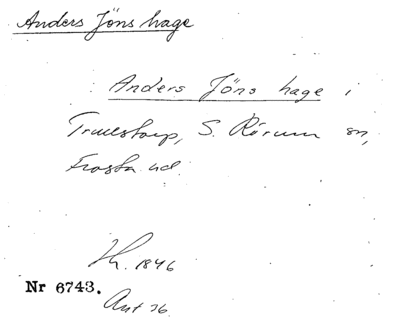 Anders Jöns hage
Anders Jöns hage i
Truelstorp, S. Rörum sn,
Frosta hd.
Lh. 1846
Nr 6743.
Ant 36